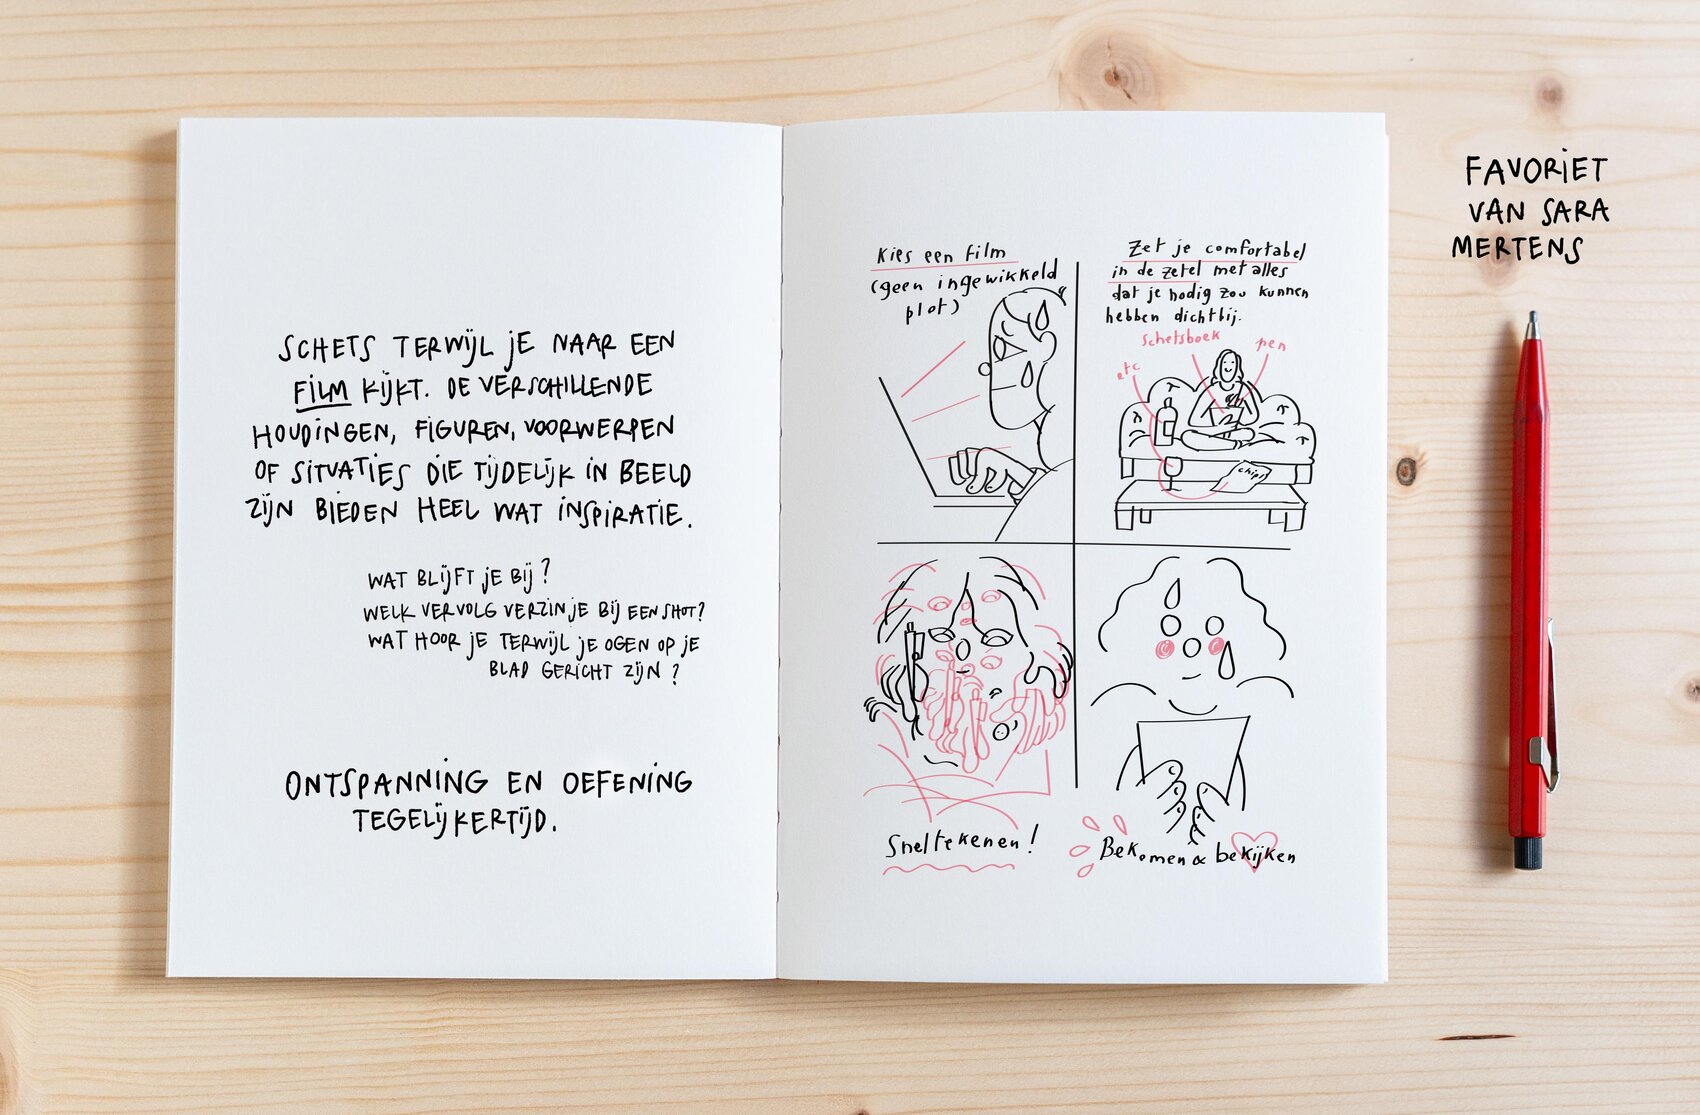 SCHETS TERWIJL JE NAAR EEN
FILM KIJKT. DE VERSCHILLENDE
HOUDINGEN, FIGUREN, VOORWERPEN
OF SITUATIES DIE TIJDELIJK IN BEELD
ZIJN BIEDEN HEEL WAT INSPIRATIE.
WAT BLIJFT JE BIJ?
WELK VERVOLG VERZIN JE BIJ EEN SHOT?
WAT HOOR JE TERWIJL JE OGEN OP JE
BLAD GERICHT ZIJN?
ONTSPANNING EN OEFENING
TEGELIJKERTIJD.
Kies een film
(geen ingewikkeld
plot)
Zet je comfortabel
in de zetel met alles
dat je nodig zou kunnen
hebben dichtbij.
schetsboek
pen
etc
chips
Sneltekenen!
Bekomen & bekijken
FAVORIET
VAN SARA
MERTENS